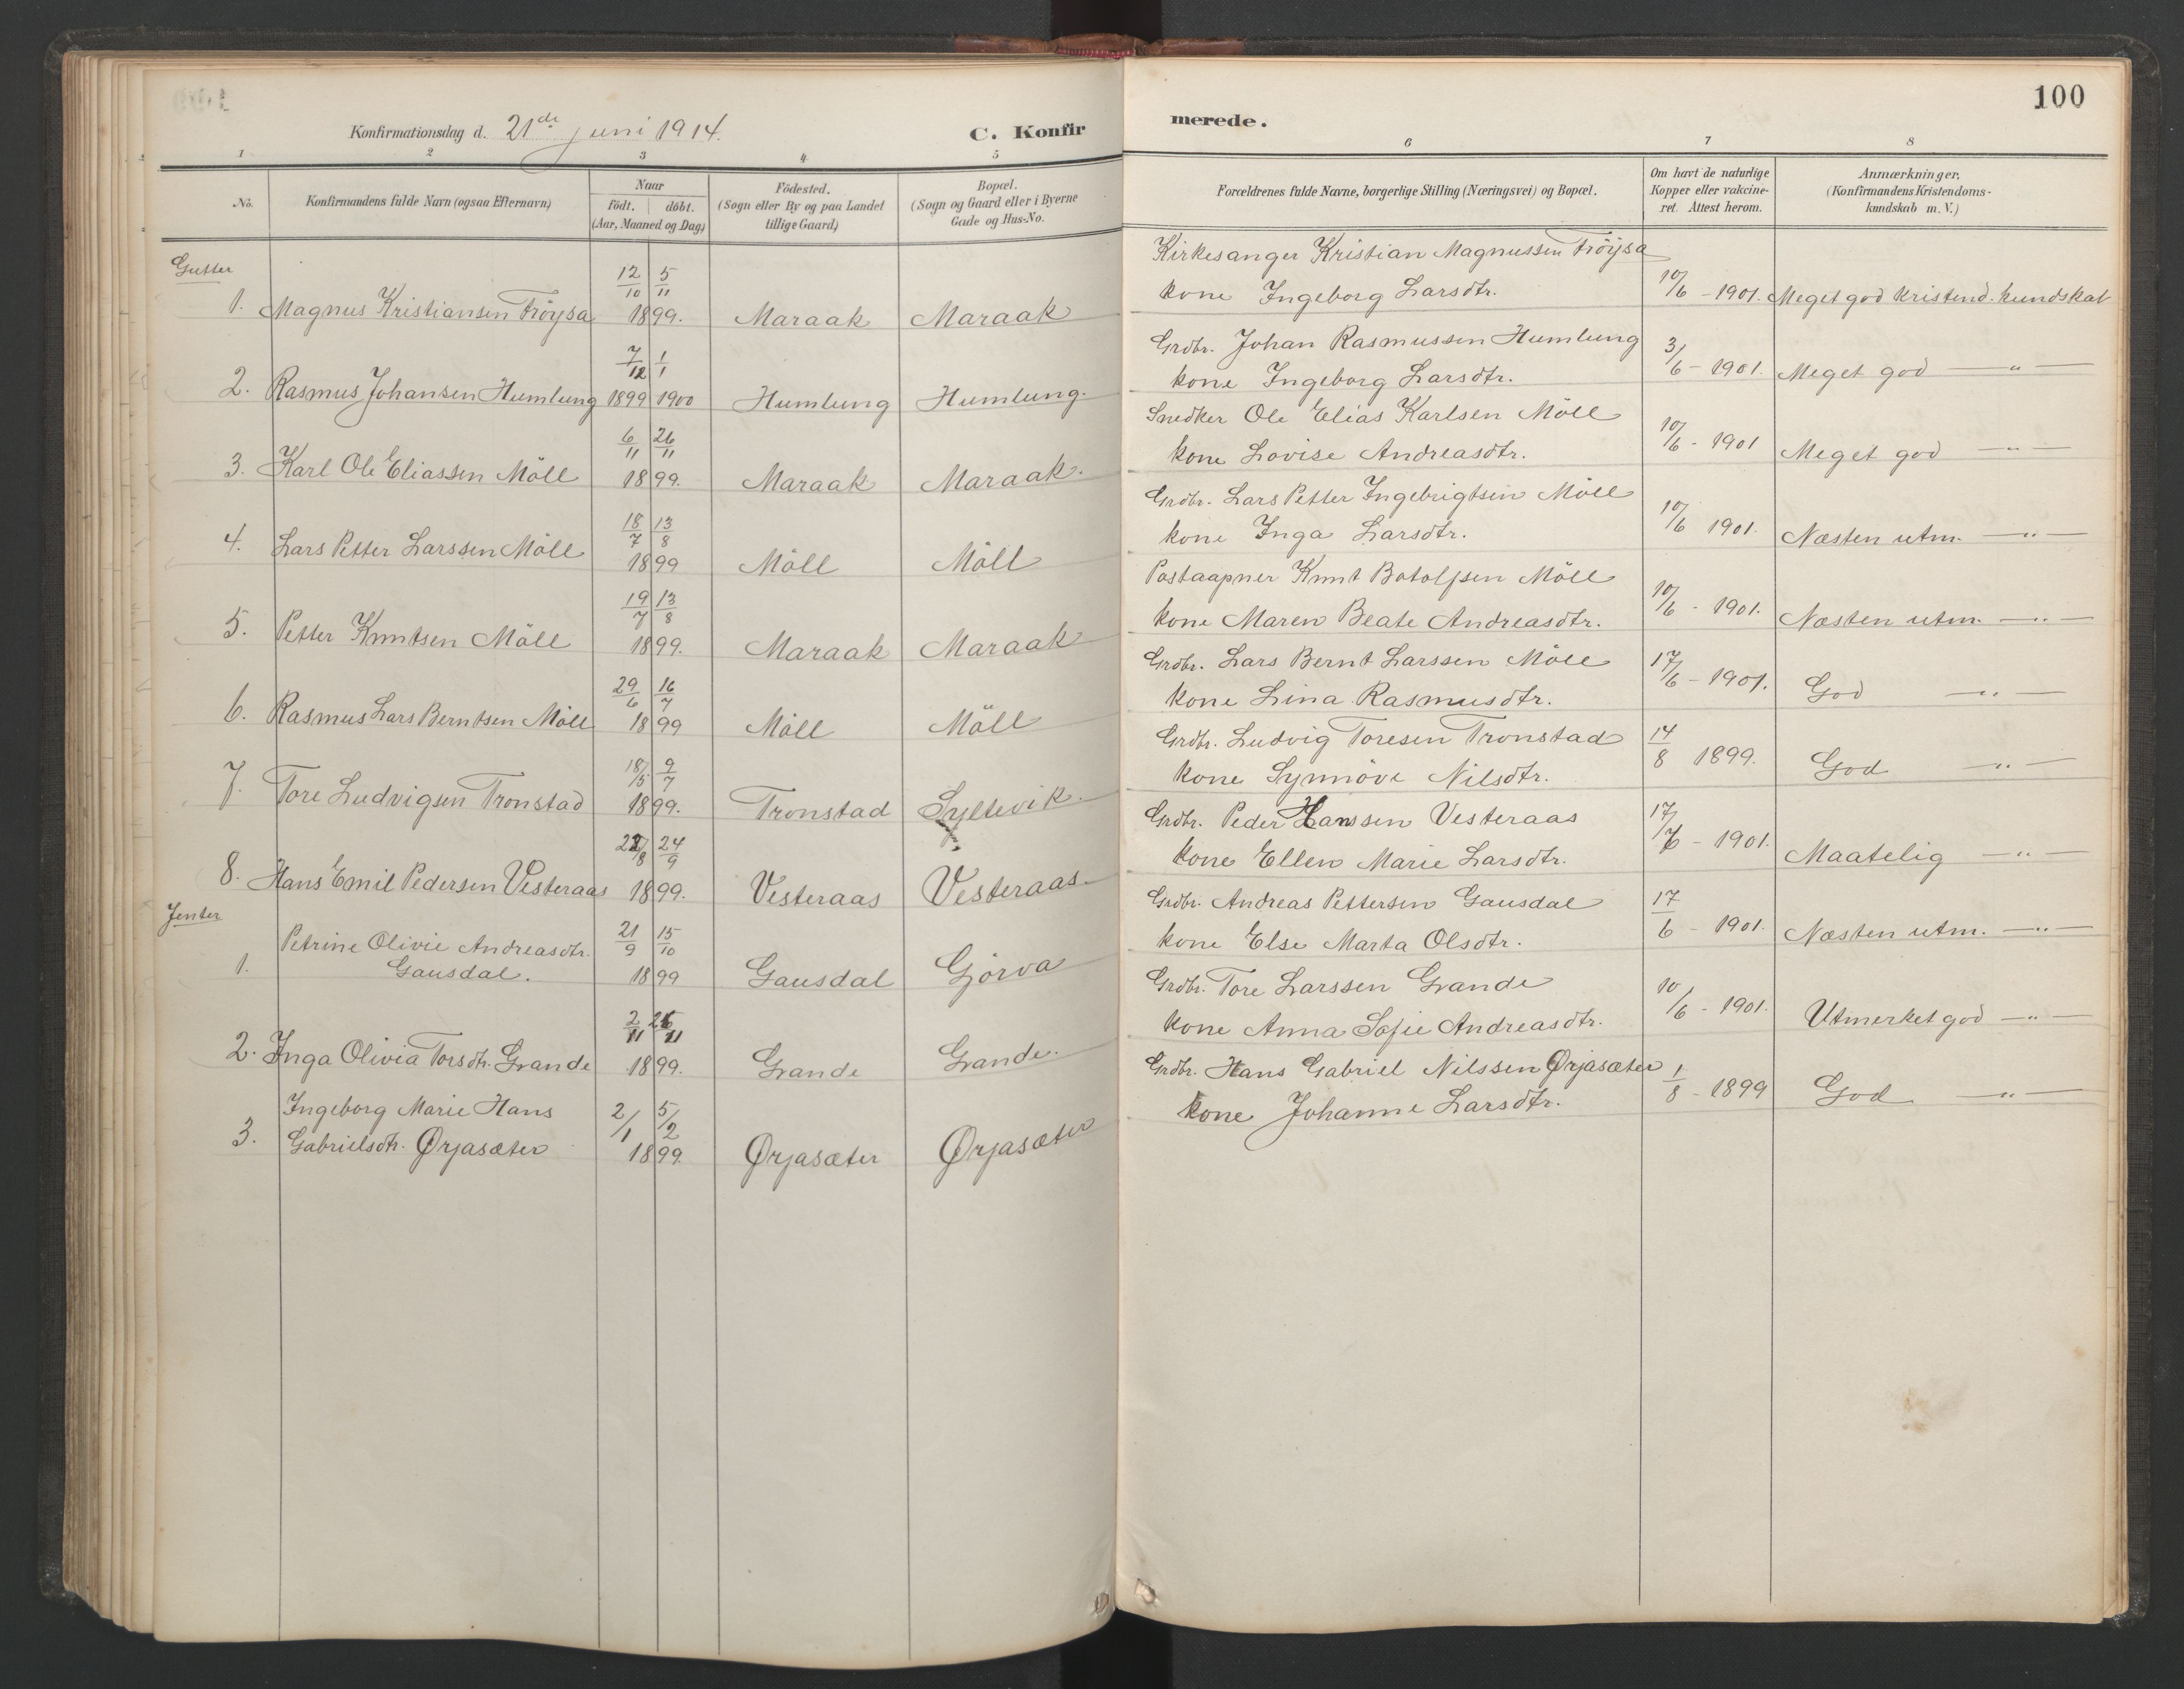 100
Konfirmationsdag d. 21de juni 1914.
C. Konfirmerede.
1 2 3 4 5 6 7 8
No.
Konfirmandens fulde Navn (ogsaa Efternavn)
Naar
Födt. döbt.
(Aar, Maaned og Dag)
Födested.
(Sogn eller By og paa Landet
tillige Gaard)
Bopæl.
(Sogn og Gaard eller i Byerne
Gade og Hus-No.
Forældrenes fulde Navne, borgerlige Stilling (Næringsvei) og Bopæl.
Om havt de naturlige
Kopper eller vakcine-
ret. Attest herom.
Anmærkninger.
(Konfirmandens Kristendoms-
kundskab m. V.)
Gutter
12/10 5/11
1. Magnus Kristiansen Fröysa 1899. Maraak Maraak
Kirkesanger Kristian Magnussen Fröysa
kone Ingeborg Larsdtr. 10/6 - 1901. Meget god kristend. kundskab
7/12 1/1
2. Rasmus Johansen Humlung 1899 1900 Humlung Humlung.
Grdbr. Johan Rasmussen Humlung
kone Ingeborg Larsdtr. 3/6 - 1901. Meget god — „ —
6/11 26/11
3. Karl Ole Eliassen Möll 1899. Maraak Maraak.
Snedker Ole Elias Karlsen Möll
kone Lovise Andreasdtr. 10/6 - 1901 Meget god — „ —
18/7 13/8
4. Lars Petter Larssen Möll 1899 Möll Möll
Grdbr. Lars Petter Ingebrigtsen Möll
kone Inga Larsdtr. 10/6 1901. Næsten utm. — „ —
19/7 13/8
5. Petter Knutsen Möll 1899. Maraak Maraak
Postaapner Knut Botolfsen Möll
kone Maren Beate Andreasdtr. 10/6 - 1901. Næsten utm. — „ —
29/6 16/7
6. Rasmus Lars Berntsen Möll 1899 Möll Möll
Grdbr. Lars Bernt Larssen Möll
kone Lina Rasmusdtr. 17/6 - 1901. God — „ —
18/5 9/7
7. Tore Ludvigsen Tronstad 1899. Tronstad Syltevik.
Grdbr. Ludvig Toresen Tronstad
kone Synnöve Nilsdtr. 14/8 1899. God — „ —
/8 24/9
8. Hans Emil Pedersen Vesteraas 1899. Vesteraas Vesteraas.
Grdbr. Peder Hanssen Vesteraas
kone Ellen Marie Larsdtr. 17/6 - 1901. Maatelig — „ —
Jenter
Petrine Olivie Andreasdtr. 21/9 15/10
1. Gausdal. 1899 Gausdal Gjörva
Grdbr. Andreas Pettersen Gausdal
kone Else Marta Olsdtr. 17/6 - 1901. Næsten utm. — „ —
2/11 26/11
2. Inga Olivia Torsdtr. Grande 1899. Grande Grande.
Grdbr. Tore Larssen Grande
kone Anna Sofie Andreasdtr. 10/6 - 1901. Utmerket god — „ —
Ingeborg Marie Hans 2/1 5/2
3. Gabrielsdtr. Ørjasæter 1899. Ørjasæter Ørjasæter
Grdbr. Hans Gabriel Nilssen Ørjasæter
kone Johanne Larsdtr. 1/8 - 1899 God — „ —